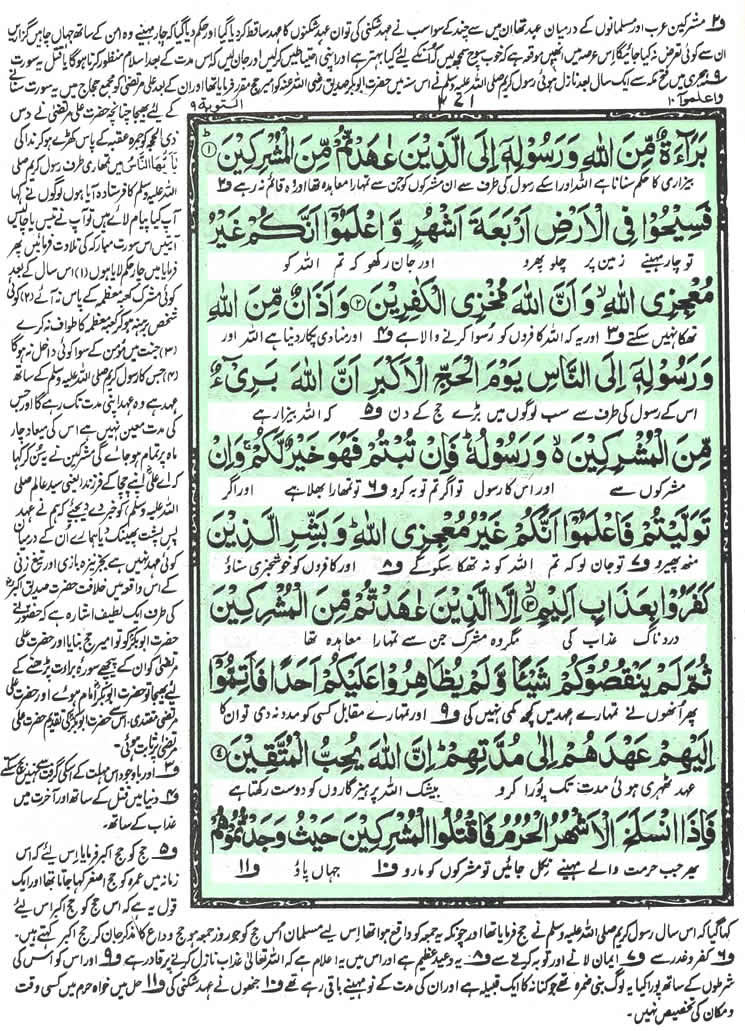 ف۲ مشرکین عرب اور مسلمانوں کے درمیان عہد تھا ان میں سے چند کے سوا سب نے عہد شکنی کی تو ان عہد شکنوں کا عہد ساقط کر دیا گیا اور حکم دیا گیا کہ چار مہینے وہ امن کے ساتھ جہاں چاہیں گزاریں
ان سے کوئی تعرض نہ کیا جائیگا اس عرصہ میں انھیں موقعہ ہے کہ خوب سوچ سمجھ لیں کہ اُنکے لئے کیا بہتر ہے اور اپنی احتیاطیں کر لیں اور جان لیں کہ اس مدت کے بعد اسلام منظور کرنا ہوگا یا قتل یہ سورت
۹ ہجری میں فتح مکہ سے ایک سال بعد نازل ہوئی رسول کریم صلی اللہ علیہ وسلم نے اس سنہ میں حضرت ابوبکر صدیق رضی اللہ عنہ کو امیر حج مقرر فرمایا تھا اور ان کے بعد علی مرتضیٰ کو مجمع حجاج میں یہ سورت سنانے
واعلموا ۱۰ ۲۷۱ التوبة ۹
بَرَآءَةٌ مِّنَ اللّٰهِ وَرَسُوْلِهٖۤ اِلَى الَّذِيْنَ عٰهَدْتُّمْ مِّنَ الْمُشْرِكِيْنَ ۱
بیزاری کا حکم سنانا ہے اللہ اور اسکے رسول کی طرف سے ان مشرکوں کو جن سے تمہارا معاہدہ تھا اور وہ قائم نہ رہے ف۲
فَسِيْحُوْا فِى الْاَرْضِ اَرْبَعَةَ اَشْهُرٍ وَّاعْلَمُوْۤا اَنَّكُمْ غَيْرُ
تو چار مہینے زمین پر چلو پھرو اور جان رکھو کہ تم اللہ کو
مُعْجِزِى اللّٰهِ ۙ وَاَنَّ اللّٰهَ مُخْزِى الْكٰفِرِيْنَ ۲ وَاَذَانٌ مِّنَ اللّٰهِ
تھکا نہیں سکتے ف۳ اور یہ کہ اللہ کافروں کو رسوا کرنے والا ہے ف۴ اور منادی پکار دینا ہے اللہ اور
وَرَسُوْلِهٖۤ اِلَى النَّاسِ يَوْمَ الْحَجِّ الْاَكْبَرِ اَنَّ اللّٰهَ بَرِىْٓءٌ
اس کے رسول کی طرف سے سب لوگوں میں بڑے حج کے دن ف۵ کہ اللہ بیزار ہے
مِّنَ الْمُشْرِكِيْنَ ۙ وَرَسُوْلُهٗ ؕ فَاِنْ تُبْتُمْ فَهُوَ خَيْرٌ لَّكُمْ ۚ وَاِنْ
مشرکوں سے اور اس کا رسول تو اگر تم توبہ کرو ف۶ تو تمھارا بھلا ہے اور اگر
تَوَلَّيْتُمْ فَاعْلَمُوْۤا اَنَّكُمْ غَيْرُ مُعْجِزِى اللّٰهِ ؕ وَبَشِّرِ الَّذِيْنَ
منھ پھیرو ف۷ تو جان لو کہ تم اللہ کو نہ تھکا سکو گے ف۸ اور کافروں کو خوشخبری سناؤ
كَفَرُوْا بِعَذَابٍ اَلِيْمٍ ۳ اِلَّا الَّذِيْنَ عٰهَدْتُّمْ مِّنَ الْمُشْرِكِيْنَ
دردناک عذاب کی مگر وہ مشرک جن سے تمہارا معاہدہ تھا
ثُمَّ لَمْ يَنْقُصُوْكُمْ شَيْئًا وَّلَمْ يُظَاهِرُوْا عَلَيْكُمْ اَحَدًا فَاَتِمُّوْۤا
پھر انھوں نے تمہارے عہد میں کچھ کمی نہیں کی ف۹ اور تمہارے مقابل کسی کو مدد نہ دی تو ان کا
اِلَيْهِمْ عَهْدَهُمْ اِلٰى مُدَّتِهِمْ ؕ اِنَّ اللّٰهَ يُحِبُّ الْمُتَّقِيْنَ ۴
عہد ٹھہری ہوئی مدت تک پورا کرو بیشک اللہ پرہیزگاروں کو دوست رکھتا ہے
فَاِذَا انْسَلَخَ الْاَشْهُرُ الْحُرُمُ فَاقْتُلُوا الْمُشْرِكِيْنَ حَيْثُ وَجَدْتُّمُوْهُمْ
پھر جب حرمت والے مہینے نکل جائیں تو مشرکوں کو مارو ف۱۰ جہاں پاؤ ف۱۱
کے لیئے بھیجا چنانچہ حضرت علی مرتضیٰ نے دس
ذی الحجہ کو جمرہ عقبہ کے پاس کھڑے ہو کر ندا کی
یٰۤاَیُّهَا النَّاسُ میں تمھاری طرف رسول کریم
صلی اللہ علیہ وسلم کا فرستادہ آیا ہوں لوگوں نے کہا
آپ کیا پیام لائے ہیں تو آپ نے تیس یا چالیس
آیتیں اس سورت مبارکہ کی تلاوت فرمائیں پھر
فرمایا میں چار حکم لایا ہوں (۱) اس سال کے بعد
کوئی مشرک کعبہ معظمہ کے پاس نہ آئے (۲) کوئی
شخص برہنہ ہو کر کعبہ معظمہ کا طواف نہ کرے
(۳) جنت میں مومن کے سوا کوئی داخل نہ ہوگا
(۴) جس کا رسول کریم صلی اللہ علیہ وسلم کے ساتھ
عہد ہے وہ عہد اپنی مدت تک رہے گا اور جس
کی مدت معین نہیں ہے اس کی میعاد چار
ماہ پر تمام ہو جائے گی مشرکین نے یہ سُن کر کہا
کہ اے علی اپنے چچا کے فرزند (یعنی سید عالم صلی
اللہ علیہ وسلم) کو خبر دے دیجئے کہ ہم نے عہد
پس پشت پھینک دیا ہمارے ان کے درمیان
کوئی عہد نہیں ہے بجز نیزہ بازی اور تیغ زنی
کے اس واقعہ میں خلافت حضرت صدیق اکبر
کی طرف ایک لطیف اشارہ ہے کہ حضور نے
حضرت ابوبکر کو تو امیر حج بنایا اور حضرت علی
مرتضیٰ کو ان کے پیچھے سورہ براءت پڑھنے کے
لیے بھیجا تو حضرت ابوبکر امام ہوئے اور حضرت علی
مرتضیٰ مقتدی۔ اس سے حضرت ابوبکر کی تقدیم حضرت علی
مرتضیٰ پر ثابت ہوئی۔
ف۳ اور باوجود اس مہلت کے اسکی گرفت سے نہیں بچ سکتے
ف۴ دنیا میں قتل کے ساتھ اور آخرت میں
عذاب کے ساتھ۔
ف۵ حج کو حج اکبر فرمایا اس لیئے کہ اس
زمانہ میں عمرہ کو حج اصغر کہا جاتا تھا اور ایک
قول یہ ہے کہ اس حج کو حج اکبر اس لیے
کہا گیا کہ اس سال رسول کریم صلی اللہ علیہ وسلم نے حج فرمایا تھا اور چونکہ یہ جمعہ کو واقع ہوا تھا اس لیے مسلمان اُس حج کو جو روز جمعہ ہو حج وداع کا مذکر جان کر حج اکبر کہتے ہیں۔
ف۶ کفر و غدر سے ف۷ ایمان لانے اور توبہ کرنے سے ف۸ یہ وعید عظیم ہے اور اس میں یہ اعلام ہے کہ اللہ تعالیٰ عذاب نازل کرنے پر قادر ہے ف۹ اور اس کو اُس کی
شرطوں کے ساتھ پورا کیا یہ لوگ بنی ضمرہ تھے جو کنانہ کا ایک قبیلہ ہے اور ان کی مدت کے نو مہینے باقی رہے تھے ف۱۰ جنھوں نے عہد شکنی کی ف۱۱ حل میں خواہ حرم میں کسی وقت
و مکان کی تخصیص نہیں۔